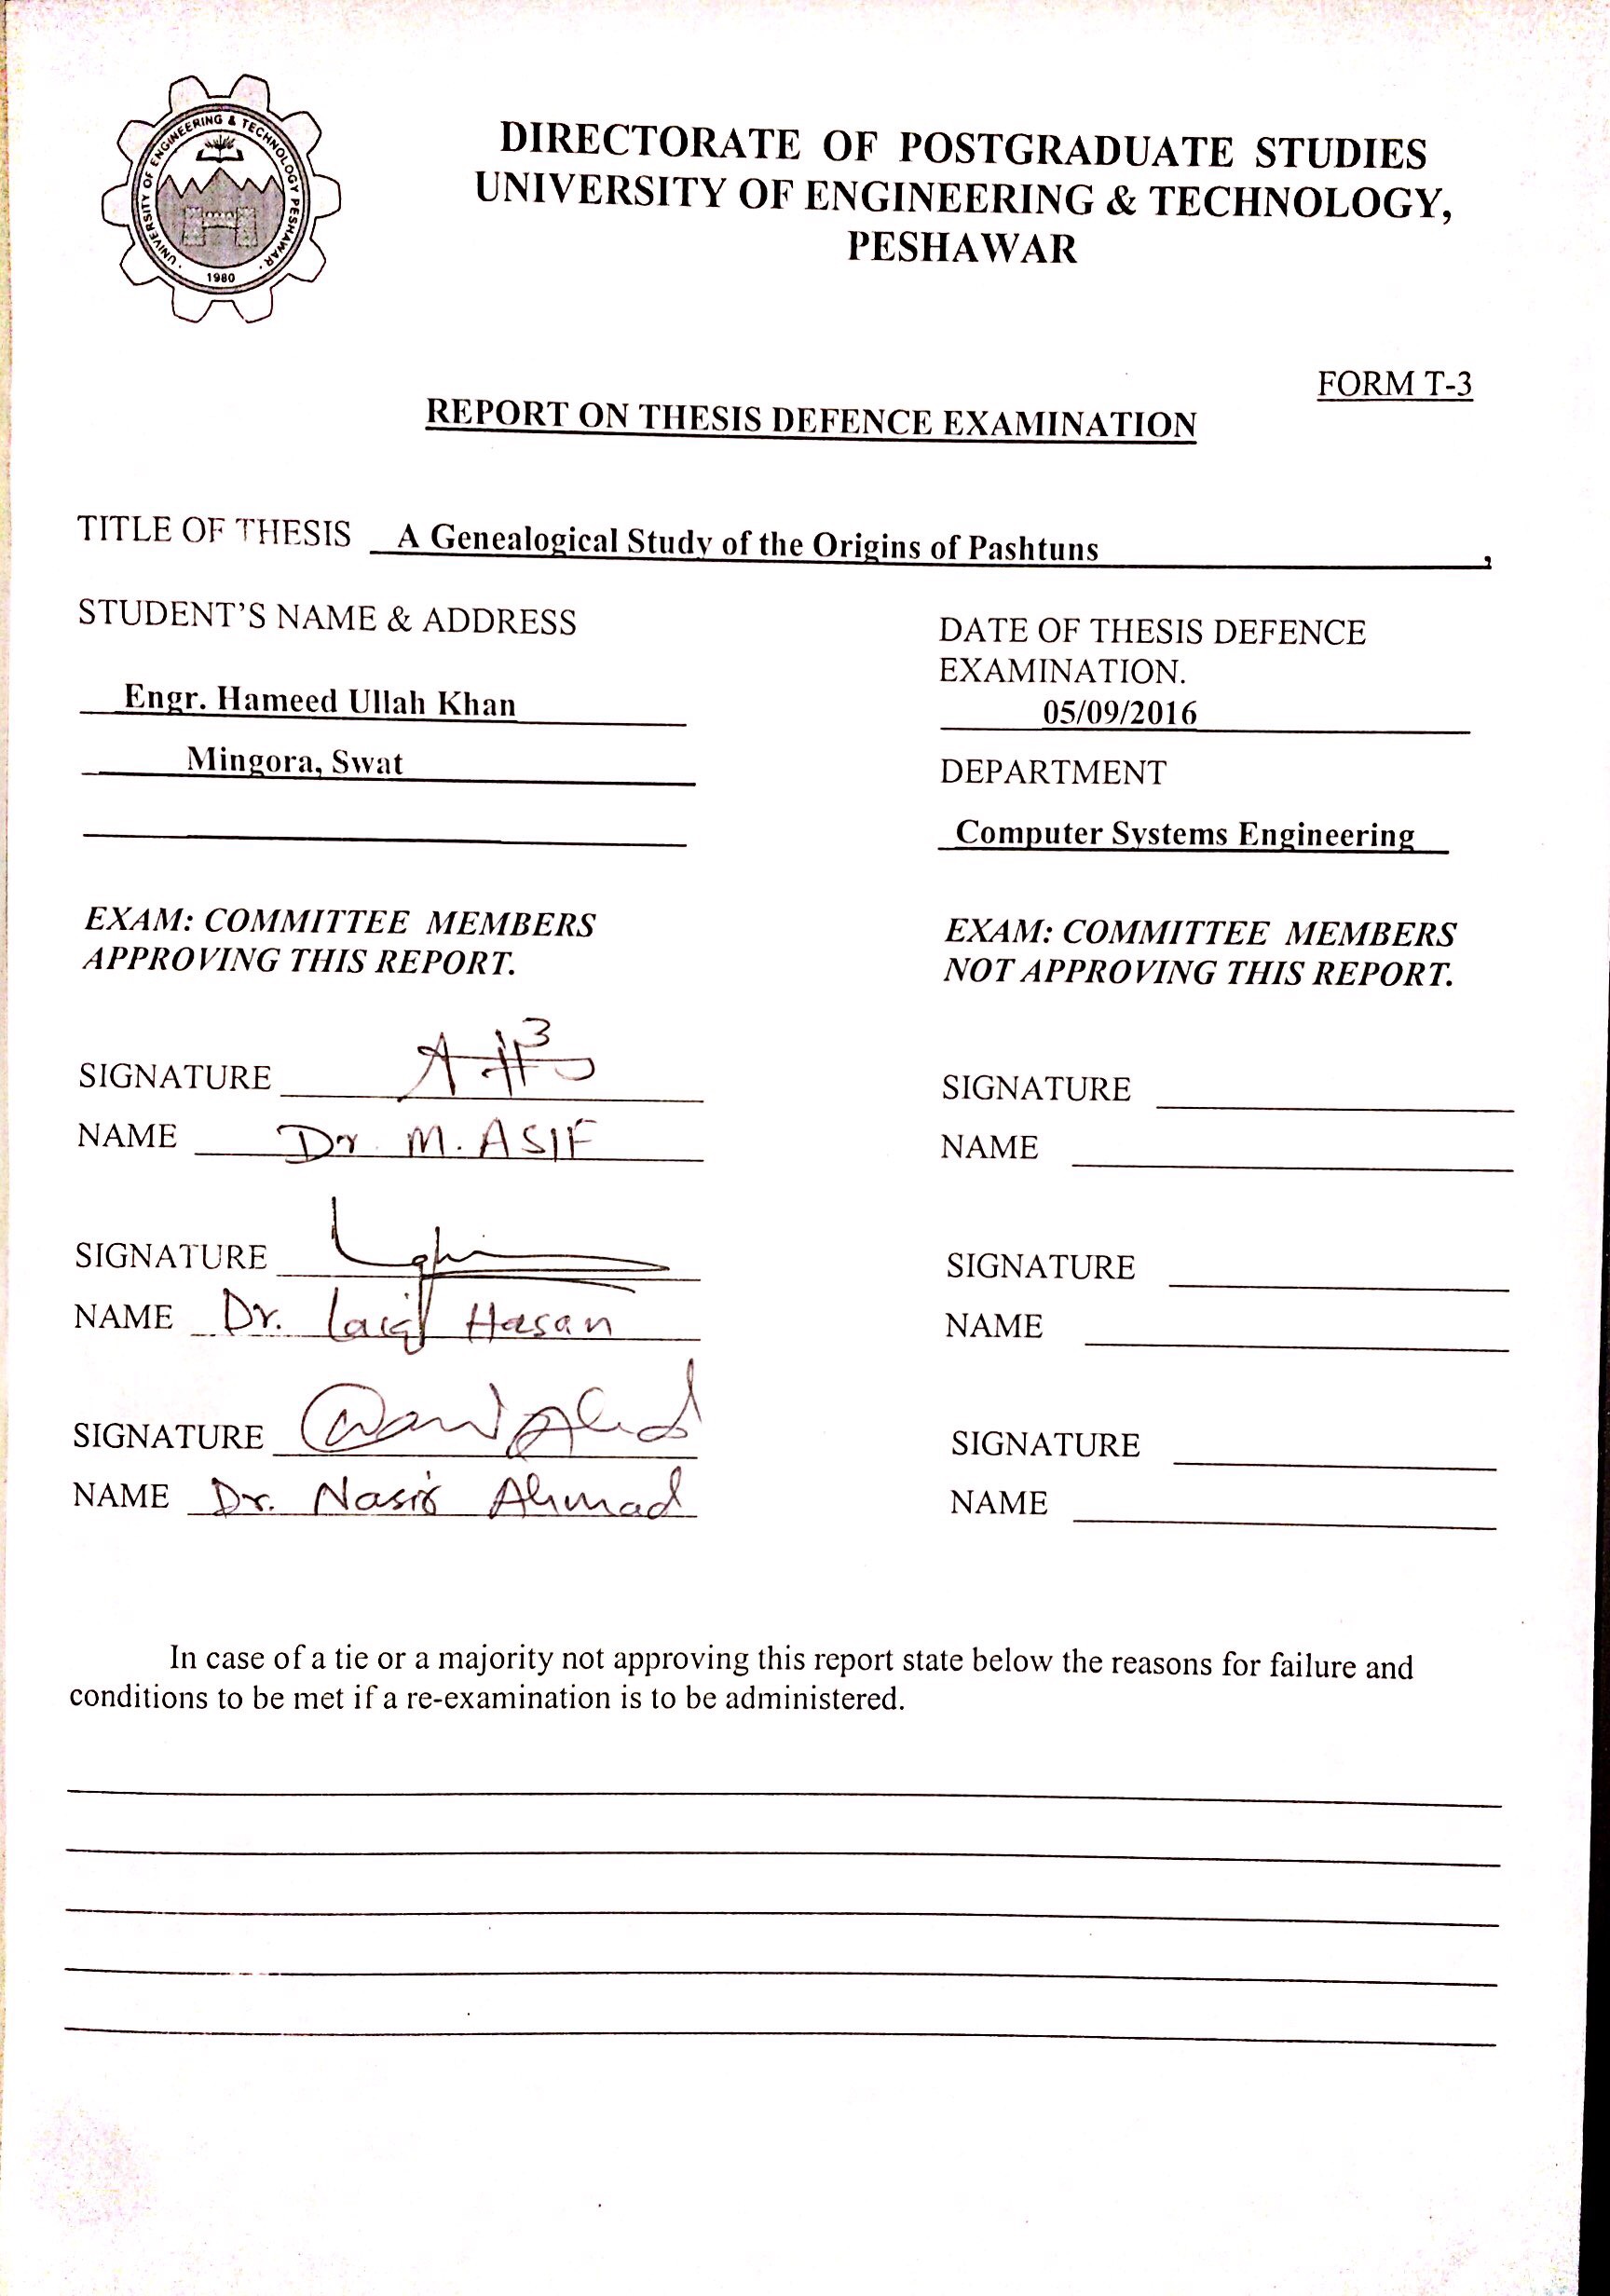 UNIVERSITY OF ENGINEERING & TECHNOLOGY PESHAWAR
1980
DIRECTORATE OF POSTGRADUATE STUDIES
UNIVERSITY OF ENGINEERING & TECHNOLOGY,
PESHAWAR
FORM T-3
REPORT ON THESIS DEFENCE EXAMINATION
TITLE OF THESIS A Genealogical Study of the Origins of Pashtuns ,
STUDENT'S NAME & ADDRESS
Engr. Hameed Ullah Khan
Mingora, Swat
DATE OF THESIS DEFENCE
EXAMINATION.
05/09/2016
DEPARTMENT
Computer Systems Engineering
EXAM: COMMITTEE MEMBERS
APPROVING THIS REPORT.
SIGNATURE
NAME Dr M. ASIF
SIGNATURE
NAME Dr. Laiq Hasan
SIGNATURE
NAME Dr. Nasir Ahmad
EXAM: COMMITTEE MEMBERS
NOT APPROVING THIS REPORT.
SIGNATURE
NAME
SIGNATURE
NAME
SIGNATURE
NAME
In case of a tie or a majority not approving this report state below the reasons for failure and
conditions to be met if a re-examination is to be administered.